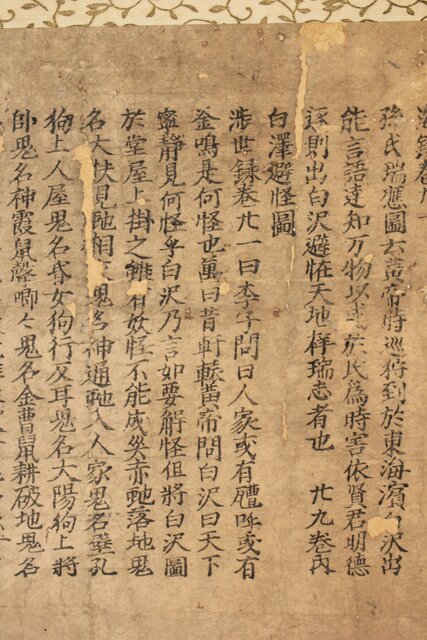 録卷
孫氏瑞應圖云黄帝時巡狩到於東海濱白沢出
能言語達知万物以戒於民為時害依賢君明德
逐則出白沢避恠天地祥瑞志者也　廿九卷内
白澤避怪圖
渉世録卷廿一曰李子問曰人家或有呼或有
釜鳴是何怪也萬曰昔軒轅黄帝問白沢曰天下
寧静見何怪乎白沢乃言如要解怪但將白沢圖
於堂屋上掛之雖有妖怪不能成災赤虵落地鬼
名大扶見虵相鬼名神通虵入人家鬼名壁孔
狗上人屋鬼名女狗行反耳鬼名大陽狗上將
卧鬼名神霞鼠聲唧々鬼名金曹鼠耕破地鬼名